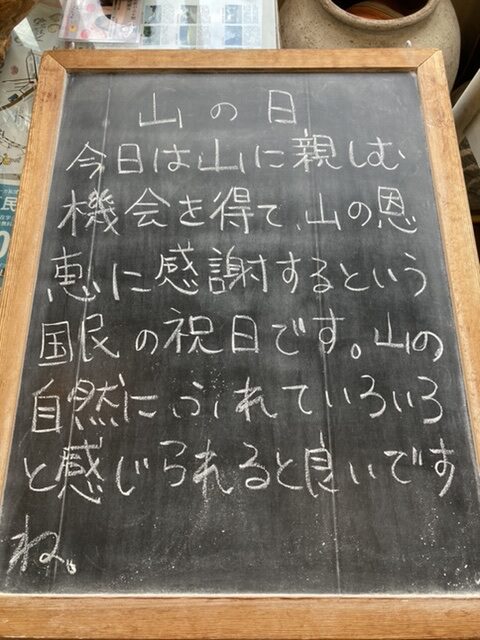 山の日
今日は山に親しむ
機会を得て、山の恩
恵に感謝するという
国民の祝日です。山の
自然にふれていろいろ
と感じられると良いです
ね。
民